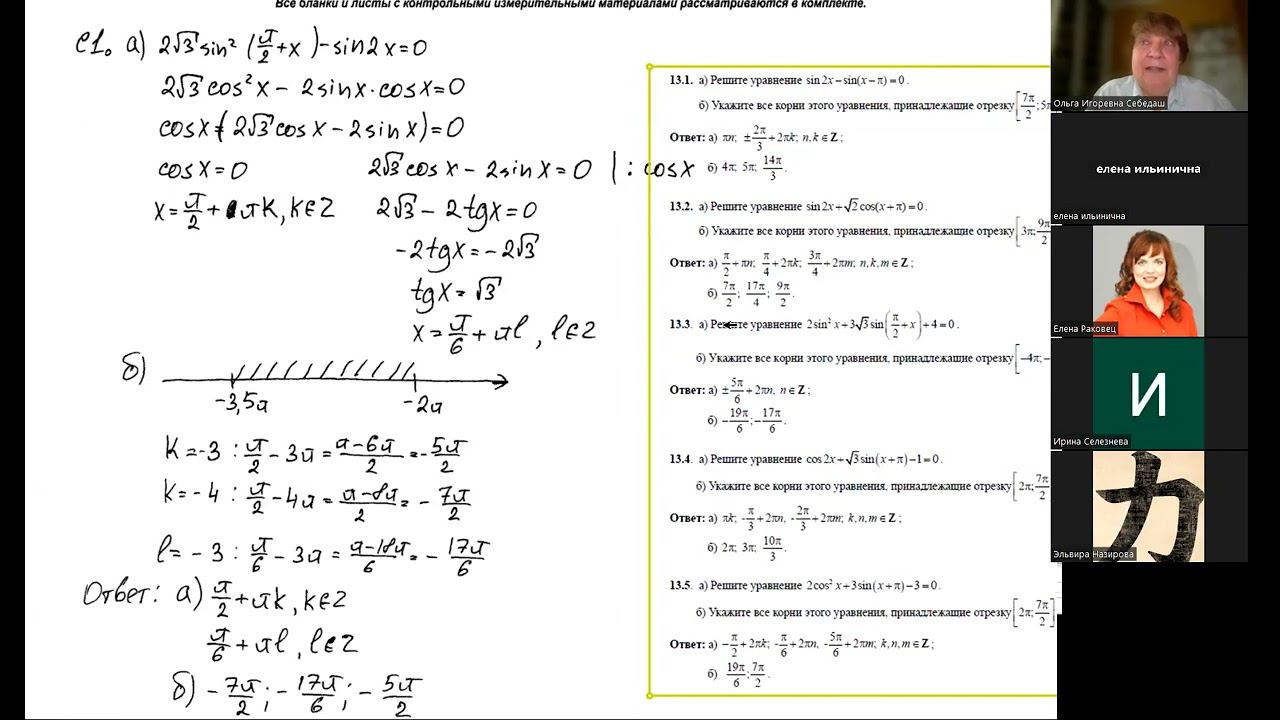 Все бланки и листы с контрольными измерительными материалами рассматриваются в комплекте.
С1. а) 2√3 sin² (π/2 + x) - sin2x = 0
2√3 cos²x - 2sinx·cosx = 0
cosx (2√3 cosx - 2sinx) = 0
cosx = 0
2√3 cosx - 2sinx = 0 | : cosx
x = π/2 + πk, k∈Z
2√3 - 2tgx = 0
-2tgx = -2√3
tgx = √3
x = π/6 + πl, l∈Z
б)
-3,5π -2π
k = -3 : π/2 - 3π = (π-6π)/2 = -5π/2
k = -4 : π/2 - 4π = (π-8π)/2 = -7π/2
l = -3 : π/6 - 3π = (π-18π)/6 = -17π/6
Ответ: а) π/2 + πk, k∈Z
π/6 + πl, l∈Z
б) -7π/2; -17π/6; -5π/2
13.1. а) Решите уравнение sin 2x − sin(x − π) = 0.
б) Укажите все корни этого уравнения, принадлежащие отрезку [7π/2; 5π
Ответ: а) πn; ±2π/3 + 2πk; n, k ∈ Z;
б) 4π; 5π; 14π/3.
13.2. а) Решите уравнение sin 2x + √2 cos(x + π) = 0.
б) Укажите все корни этого уравнения, принадлежащие отрезку [3π; 9π/2
Ответ: а) π/2 + πn; π/4 + 2πk; 3π/4 + 2πm; n, k, m ∈ Z;
б) 7π/2; 17π/4; 9π/2.
13.3. а) Решите уравнение 2sin² x + 3√3 sin(π/2 + x) + 4 = 0.
б) Укажите все корни этого уравнения, принадлежащие отрезку [−4π; −
Ответ: а) ±5π/6 + 2πn, n ∈ Z;
б) −19π/6; −17π/6.
13.4. а) Решите уравнение cos 2x + √3 sin(x + π) − 1 = 0.
б) Укажите все корни этого уравнения, принадлежащие отрезку [2π; 7π/2
Ответ: а) πk; -π/3 + 2πn, -2π/3 + 2πm; k, n, m ∈ Z;
б) 2π; 3π; 10π/3.
13.5. а) Решите уравнение 2cos² x + 3sin(x + π) − 3 = 0.
б) Укажите все корни этого уравнения, принадлежащие отрезку [2π; 7π/2]
Ответ: а) −π/2 + 2πk; -π/6 + 2πn, -5π/6 + 2πm; k, n, m ∈ Z;
б) 19π/6; 7π/2.
Ольга Игоревна Себедаш
елена ильинична
елена ильинична
Елена Раковец
И
Ирина Селезнева
力
Эльвира Назирова